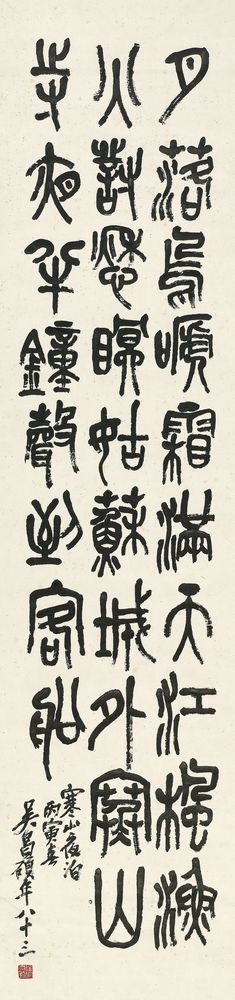 月落烏嗁霜滿天江楓漁
火對愁眠姑蘇城外寒山
寺夜半鐘聲到客船
寒山夜泊
丙寅春
吳昌碩年八十三